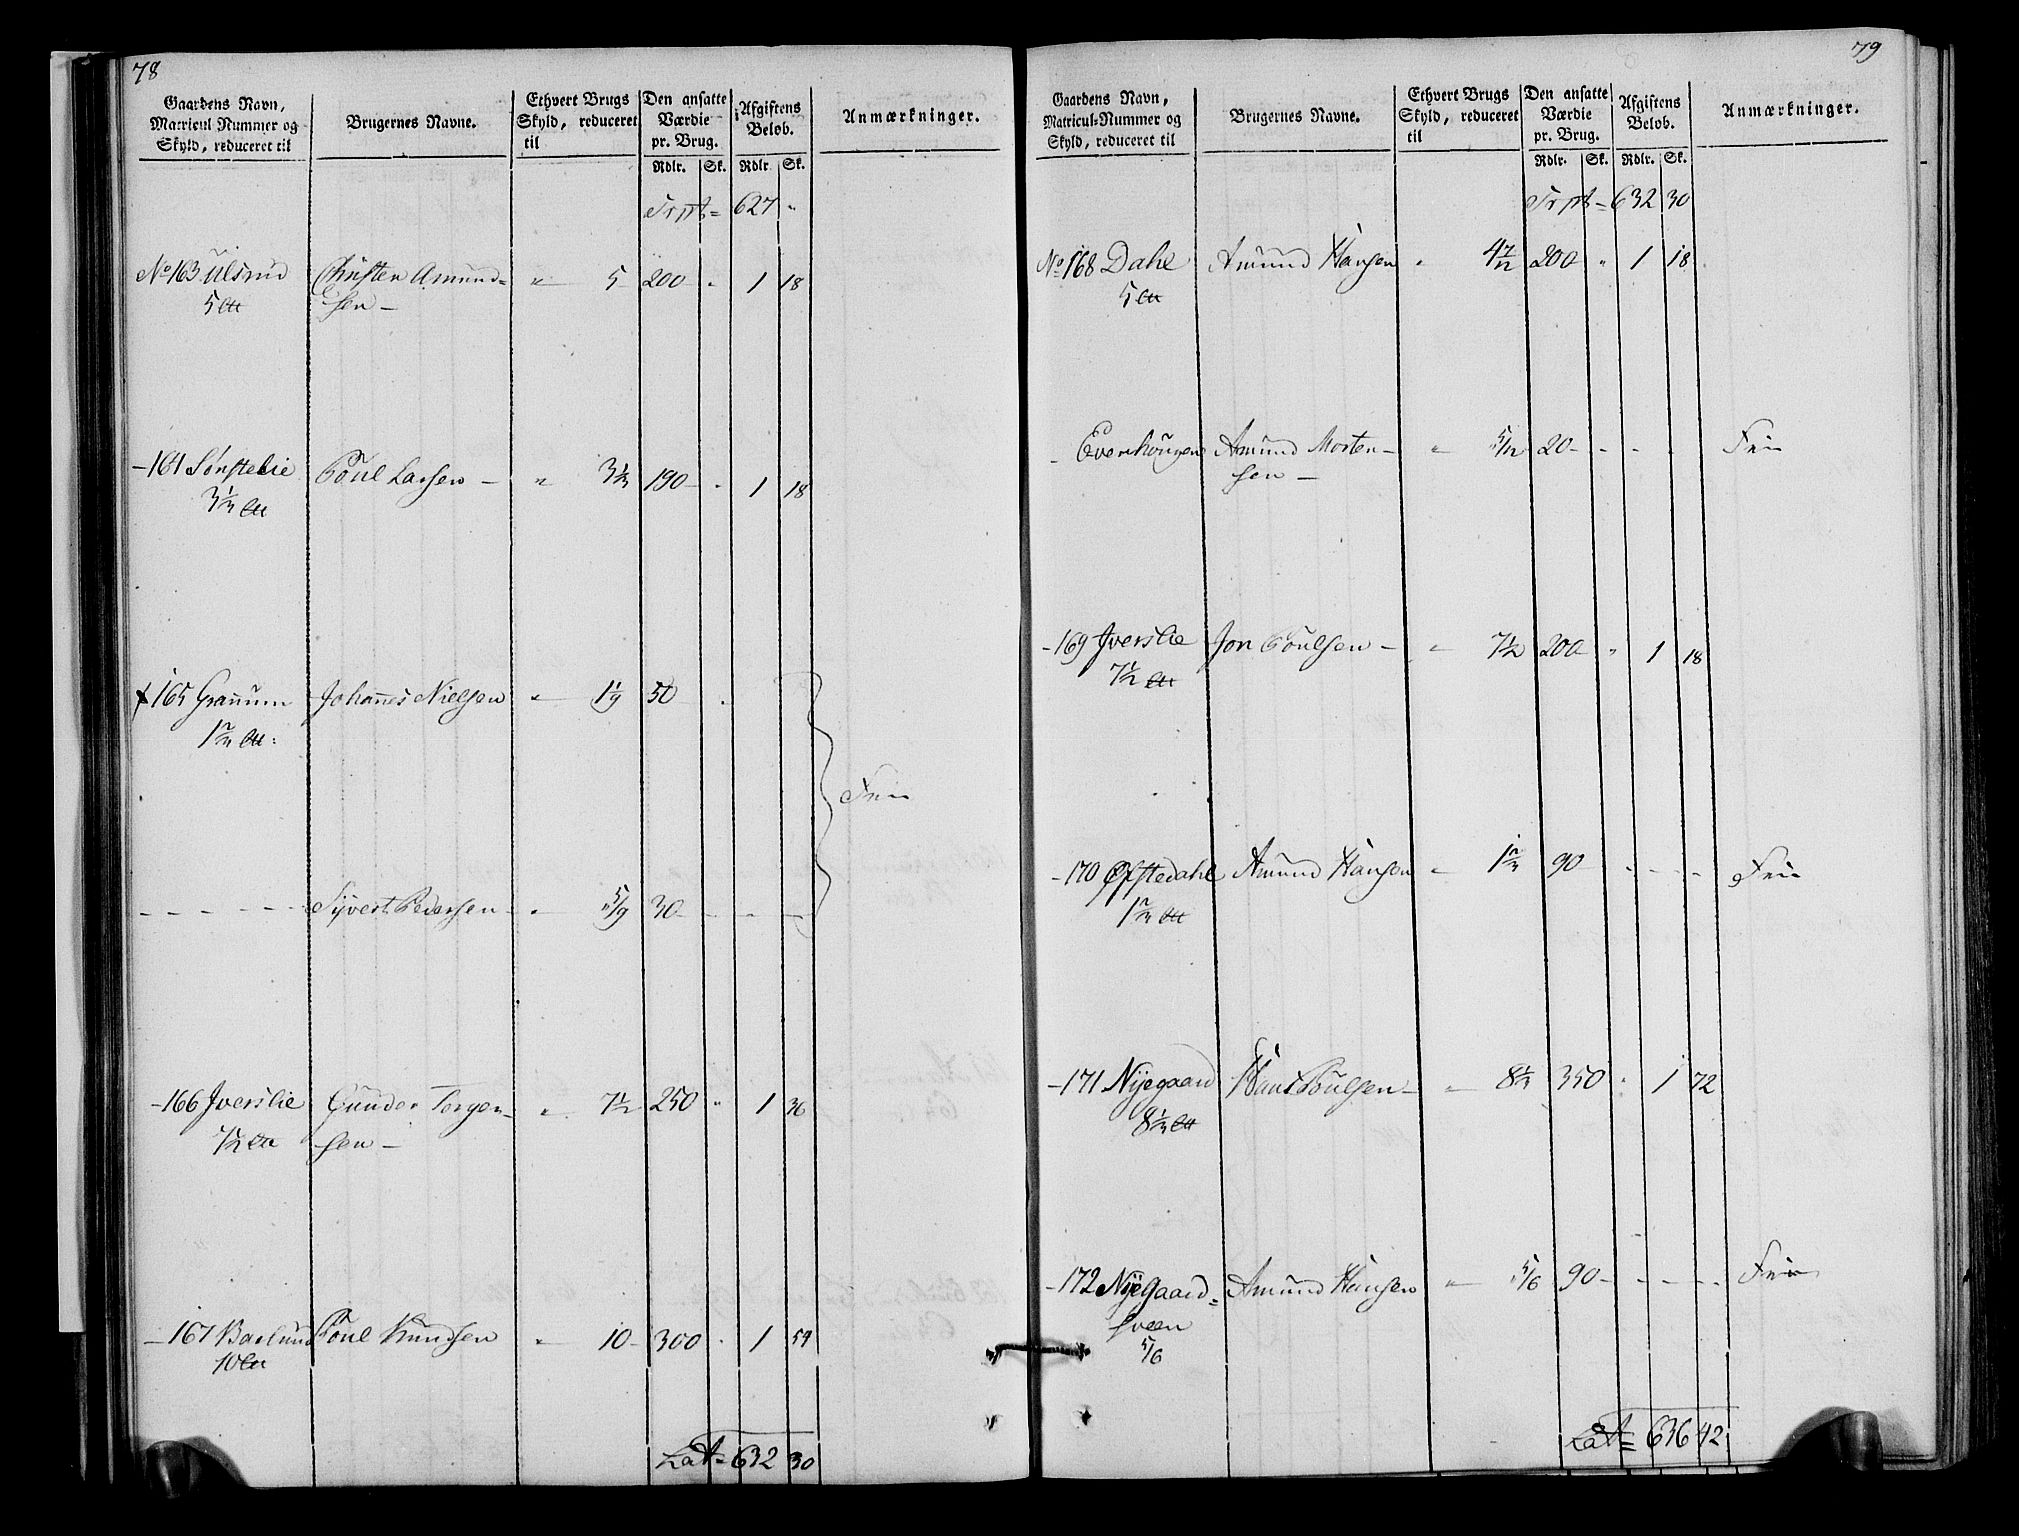 78
Gaardens Navn, Matricul Nummer og Skyld, reduceret til | Brugernes Navne. | Ethvert Brugs Skyld, reduceret til | Den ansatte Værdie pr. Brug. | Afgiftens Beløb. | Anmærkninger.
Rdlr. | Sk. | Rdlr. | Sk.
Trpt = 627 "
No 163 Ulsrud | Christen Amund- | " 5 | 200 - | 1 | 18
5 | sen -
- 164 Sønstebie | Poul Larsen - | " 3 1/3 | 190 - | 1 | 18
3 1/3
165 Granum | Johannes Nielsen | " 1 1/9 | 50 -
1 2/3
Frie
- - - - - | Syvert Pedersen - | " 5/9 | 30 - - - -
- 166 Iverslie | Gunder Torger- | " 7 1/2 | 250 " | 1 | 36
7 1/2 | sen -
- 167 Baslund | Poul Knudsen | " 10 - | 300 - | 1 | 54
10
Lat = 632 30
79
Gaardens Navn, Matricul-Nummer og Skyld, reduceret til | Brugernes Navne. | Ethvert Brugs Skyld, reduceret til | Den ansatte Værdie pr. Brug. | Afgiftens Beløb. | Anmærkninger.
Rdlr. | Sk. | Rdlr. | Sk.
Trpt = 632 30
No 168 Dahl | Amund Hansen | " 4 7/12 | 200 " | 1 | 18
5
- Evenhougen | Amund Morten- | " 5/12 | 20 - - - - | Frie
sen -
- 169 Iverslie | Jon Poulsen - | " 7 1/2 | 200 " | 1 | 18
7 1/2
- 170 Ofstedahl | Amund Hansen | " 1 2/3 | 90 - - - - | Frie
1 2/3
- 171 Nyegaard | Hans Poulsen - | " 8 1/3 | 350 " | 1 | 72
8 1/3
- 172 Nyegaard= | Amund Hansen | " 5/6 | 90 - - - - | Frie
sveen
5/6
Lat = 636 42